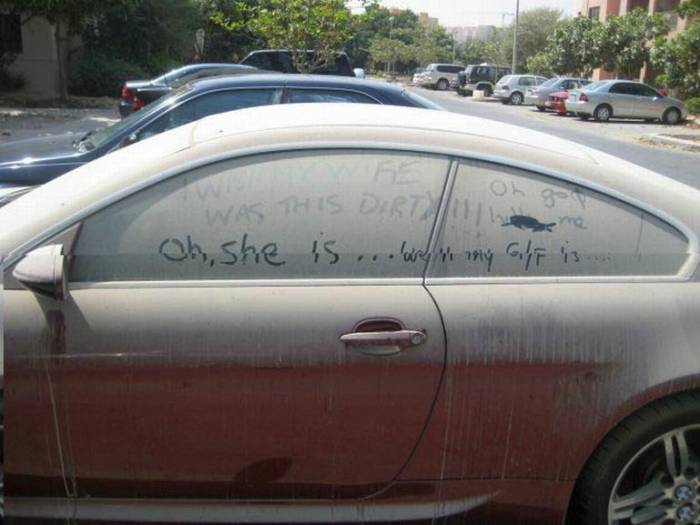 I WISH MY WIFE
WAS THIS DIRTY!!!
Oh, she is ... well my G/F is....
Oh god
me